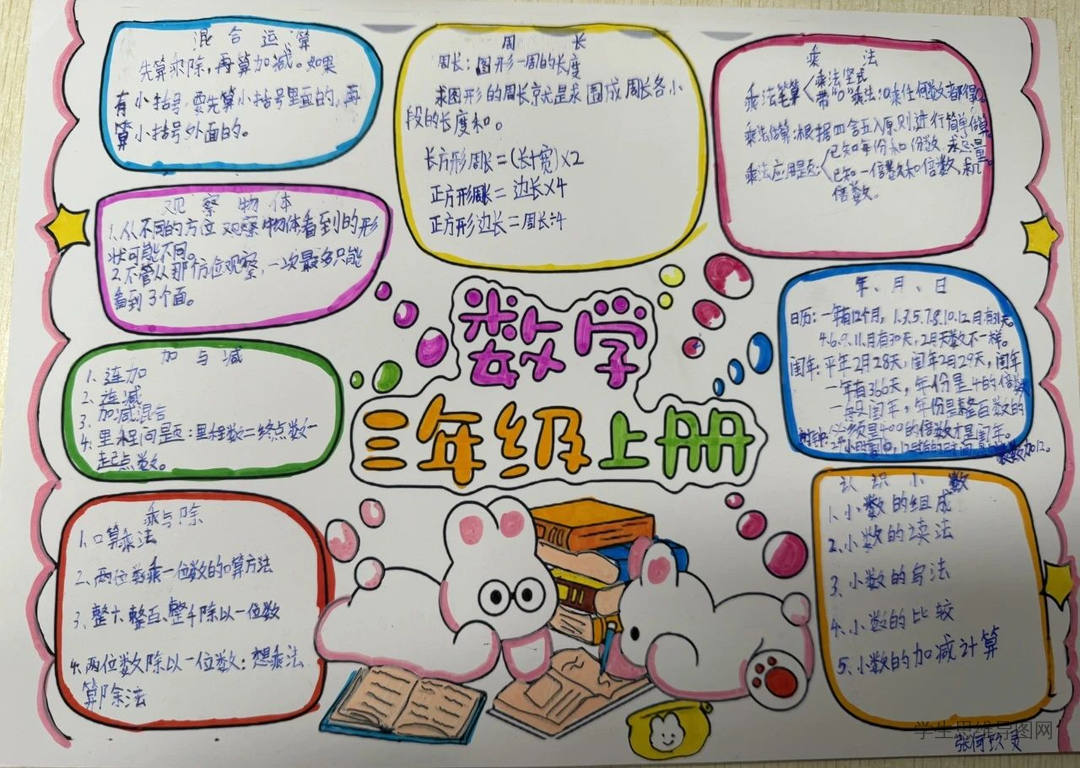 混合运算
先算乘除，再算加减。如果
有小括号，要先算小括号里面的，再
算小括号外面的。
周长
周长：图形一周的长度
求图形的周长就是求围成周长各小
段的长度和。
长方形周长=(长+宽)×2
正方形周长=边长×4
正方形边长=周长÷4
乘法
乘法笔算
乘法竖式
带"0"乘法：0乘任何数都得0
乘法估算：根据四舍五入原则进行简单估算。
乘法应用题：
已知每份和份数，求总量。
已知一倍数和倍数，求几
倍数。
观察物体
1.从不同的方位观察物体看到的形
状可能不同。
2.不管从那个方位观察，一次最多只能
看到3个面。
数学
三年级上册
年、月、日
日历：一年有12个月，1.3.5.7.8.10.12月有31天。
4.6.9.11月有30天，2月天数不一样。
闰年：平年2月28天，闰年2月29天，闰年
一年有366天，年份是4的倍数
一般是闰年，年份是整百数的
必须是400的倍数才是闰年。
加与减
1.连加
2.连减
3.加减混合
4.里程问题：里程数=终点数-
起点数。
乘与除
1.口算乘法
2.两位数乘一位数的口算方法
3.整十、整百、整千除以一位数
4.两位数除以一位数：想乘法
算除法
认识小数
1.小数的组成
2.小数的读法
3.小数的写法
4.小数的比较
5.小数的加减计算
学生思维导图网